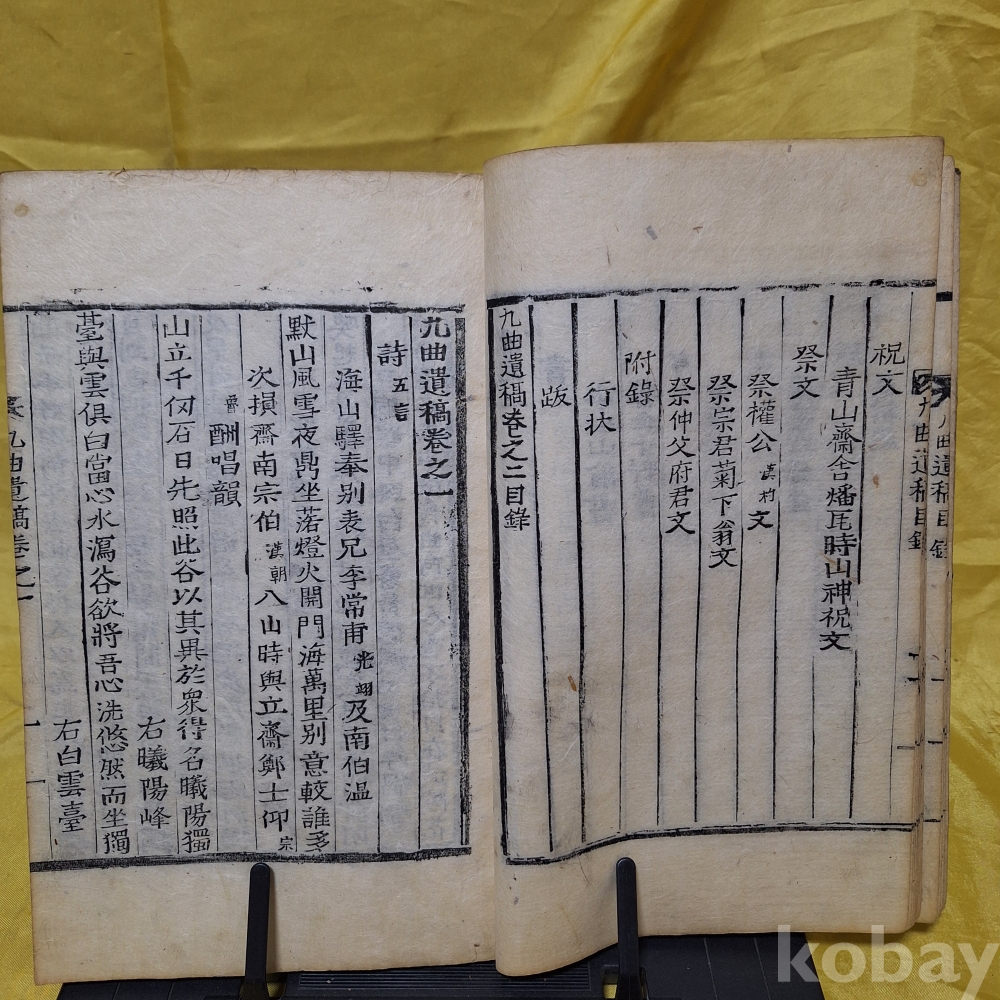 祝文
青山齋舍燔瓦時山神祝文
祭文
祭權公漢杓文
祭宗君菊下翁文
祭仲父府君文
附錄
行狀
跋
九曲遺稿卷之二目錄
九曲遺稿卷之一
詩 五言
海山驛奉別表兄李常甫光翊及南伯溫
默山風雪夜鼎坐落燈火開門海萬里別意較誰多
次損齋南宗伯漢朝八山時與立齋鄭士仰宗
魯酬唱韻
山立千仞石日先照此谷以其異於衆得名曦陽獨
右曦陽峰
臺與雲俱白當心水瀉谷欲將吾心洗悠然而坐獨
右白雲臺
九曲遺稿卷之一
九曲遺稿目錄
kobay